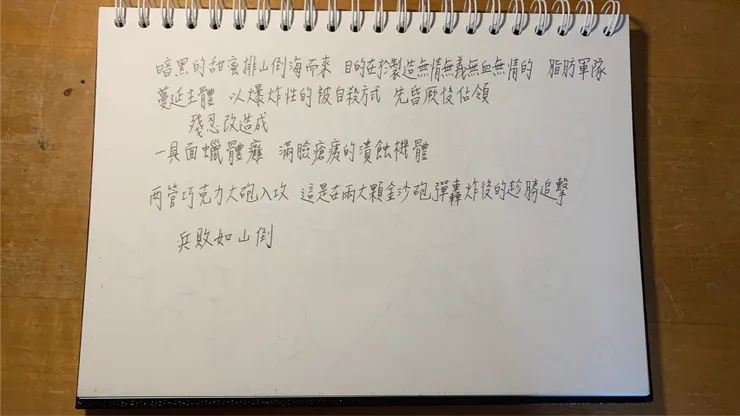 暗黑的甜蜜排山倒海而來 目的在於製造無情無義無血無情的 脂肪軍隊
蔓延主體 以爆炸性的被自殺方式 先昏厥後佔領
殘忍改造成
一具面蠟體癱 滿臉瘡痍的潰蝕機體
两管巧克力大砲入攻 這是在兩大顆金沙砲彈轟炸後的趁勝追擊
兵敗如山倒